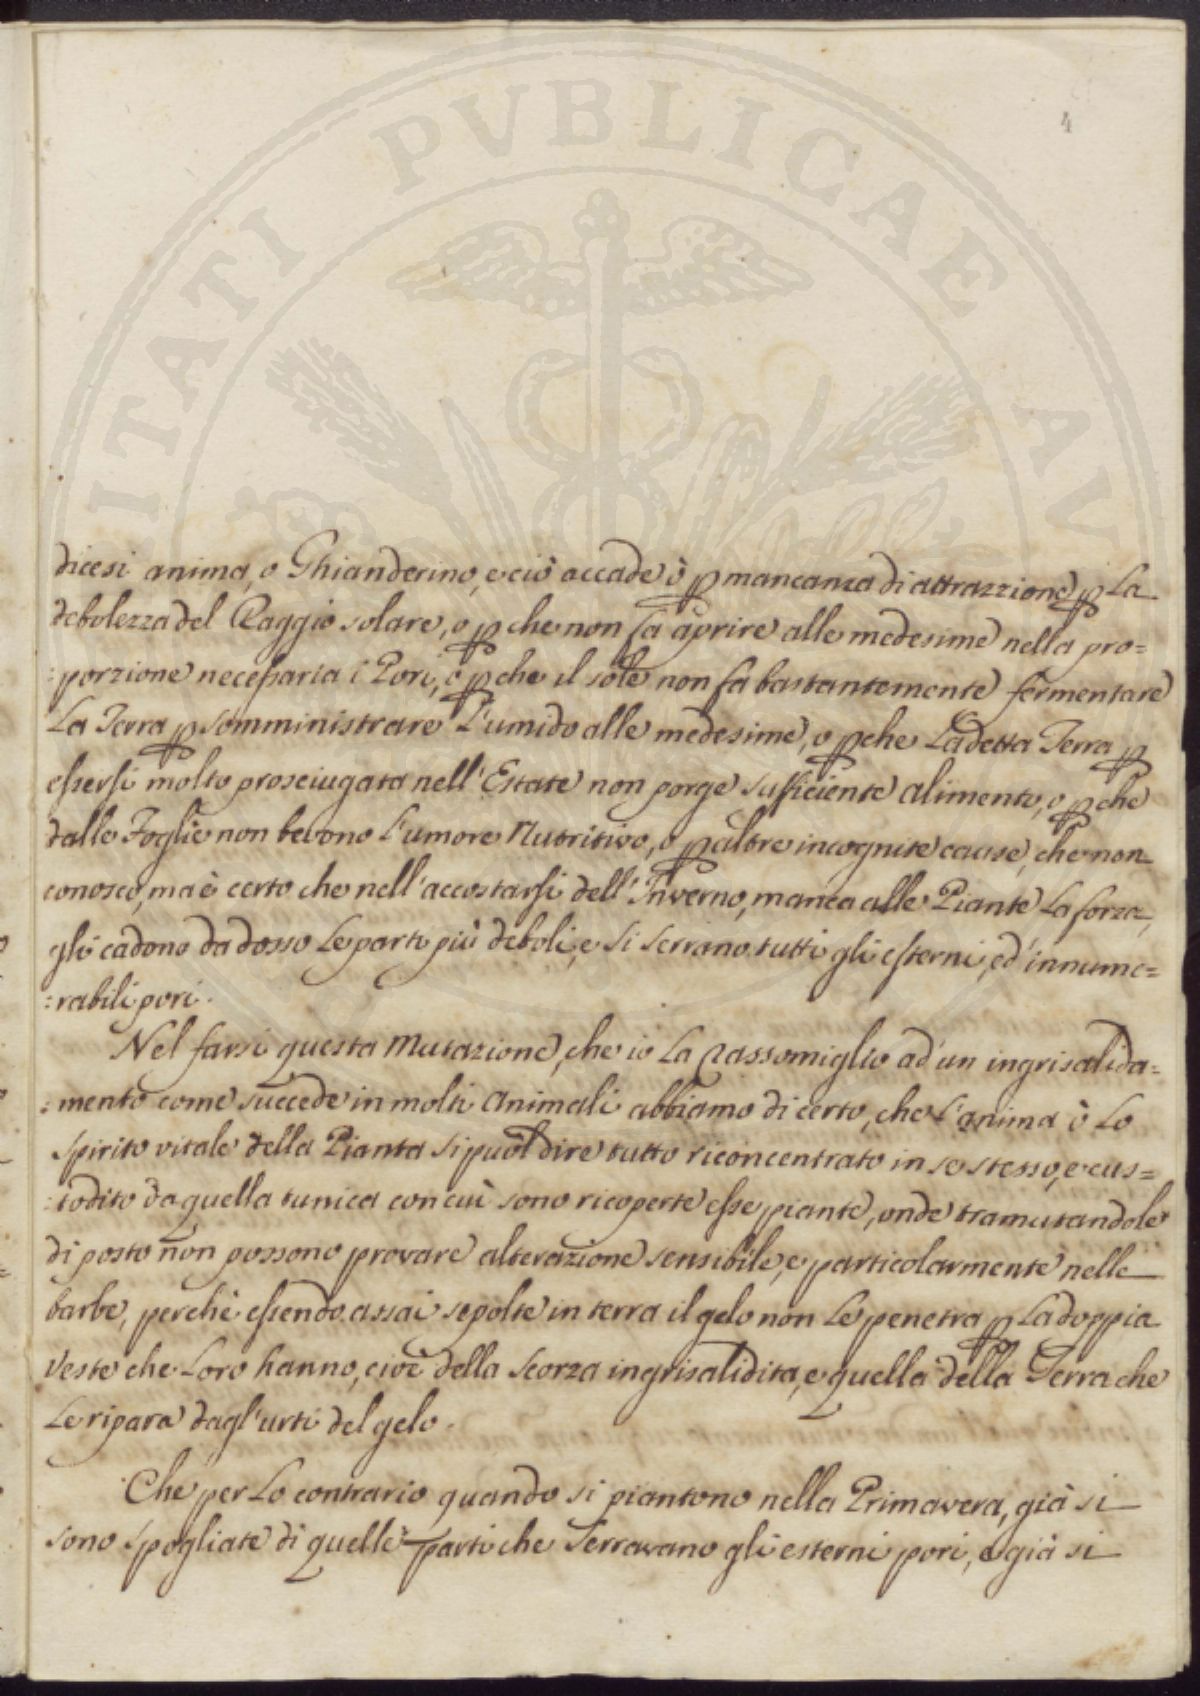 PVBLICAE
ITATI
AV
4
dicesi anima, o Ghianderino, e ciò accade ò p mancanza di attrazzione p La
debolezza del Raggio solare, o p che non fà aprire alle medesime nella pro=
:porzione necessaria i Pori, o p che il sole non fà bastantemente fermentare
La Terra p somministrare L'umido alle medesime, o pche La detta Terra p
essersi molto prosciugata nell'Estate non porge sufficiente alimento, o p che
dalle Foglie non bevono L'umore Nutritivo, o p altre incognite cause, che non
conosco, ma è certo che nell'accostarsi dell'Inverno, manca alle Piante La forza,
gli cadono da dosso Le parti più deboli, e si serrano tutti gli esterni, ed'innume=
:rabili pori.
Nel farsi questa Mutazione, che io La rassomiglio ad'un ingrisalida=
:mento come succede in molti Animali abbiamo di certo, che L'anima ò Lo
spirito vitale della Pianta si puòl dire tutto riconcentrato in se stesso, e cus=
:todito da quella tunica con cui sono ricoperte esse piante, onde tramutandole
di posto non possono provare alterazione sensibile, e particolarmente nelle
barbe, perchè essendo assai sepolte in terra il gelo non Le penetra p La doppia
Veste che Loro hanno, cioè della Scorza ingrisalidita, e quella della Terra che
Le ripara dagl'urti del gelo.
Che per Lo contrario quando si piantono nella Primavera, già si
sono spogliate di quelle parti che Serravano gli esterni pori, e già si